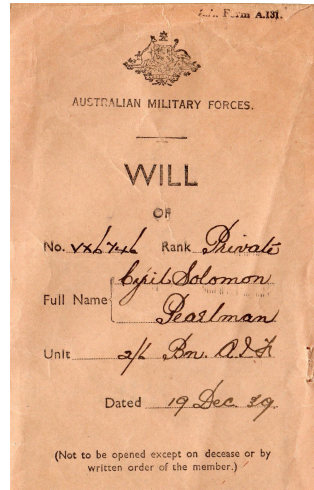 Form A.131.
AUSTRALIAN MILITARY FORCES.
WILL
OF
No. VX6746 Rank Private
Cyril Solomon
Full Name
Pearlman
Unit 2/6 Bn. A.I.F.
Dated 19 Dec. 39.
(Not to be opened except on decease or by
written order of the member.)